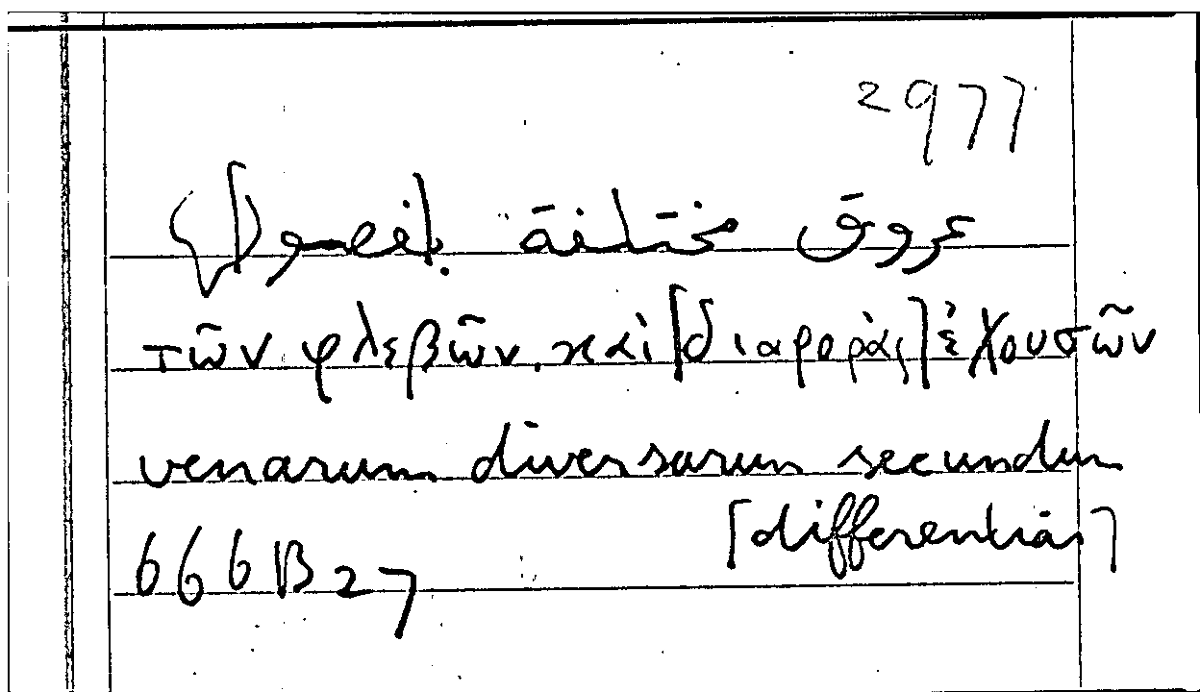 2977
عروق مختلفة بالفصول
τῶν φλεβῶν. καὶ [διαφορὰς] ἐχουσῶν
venarum diversarum secundum
[differentias]
666B27